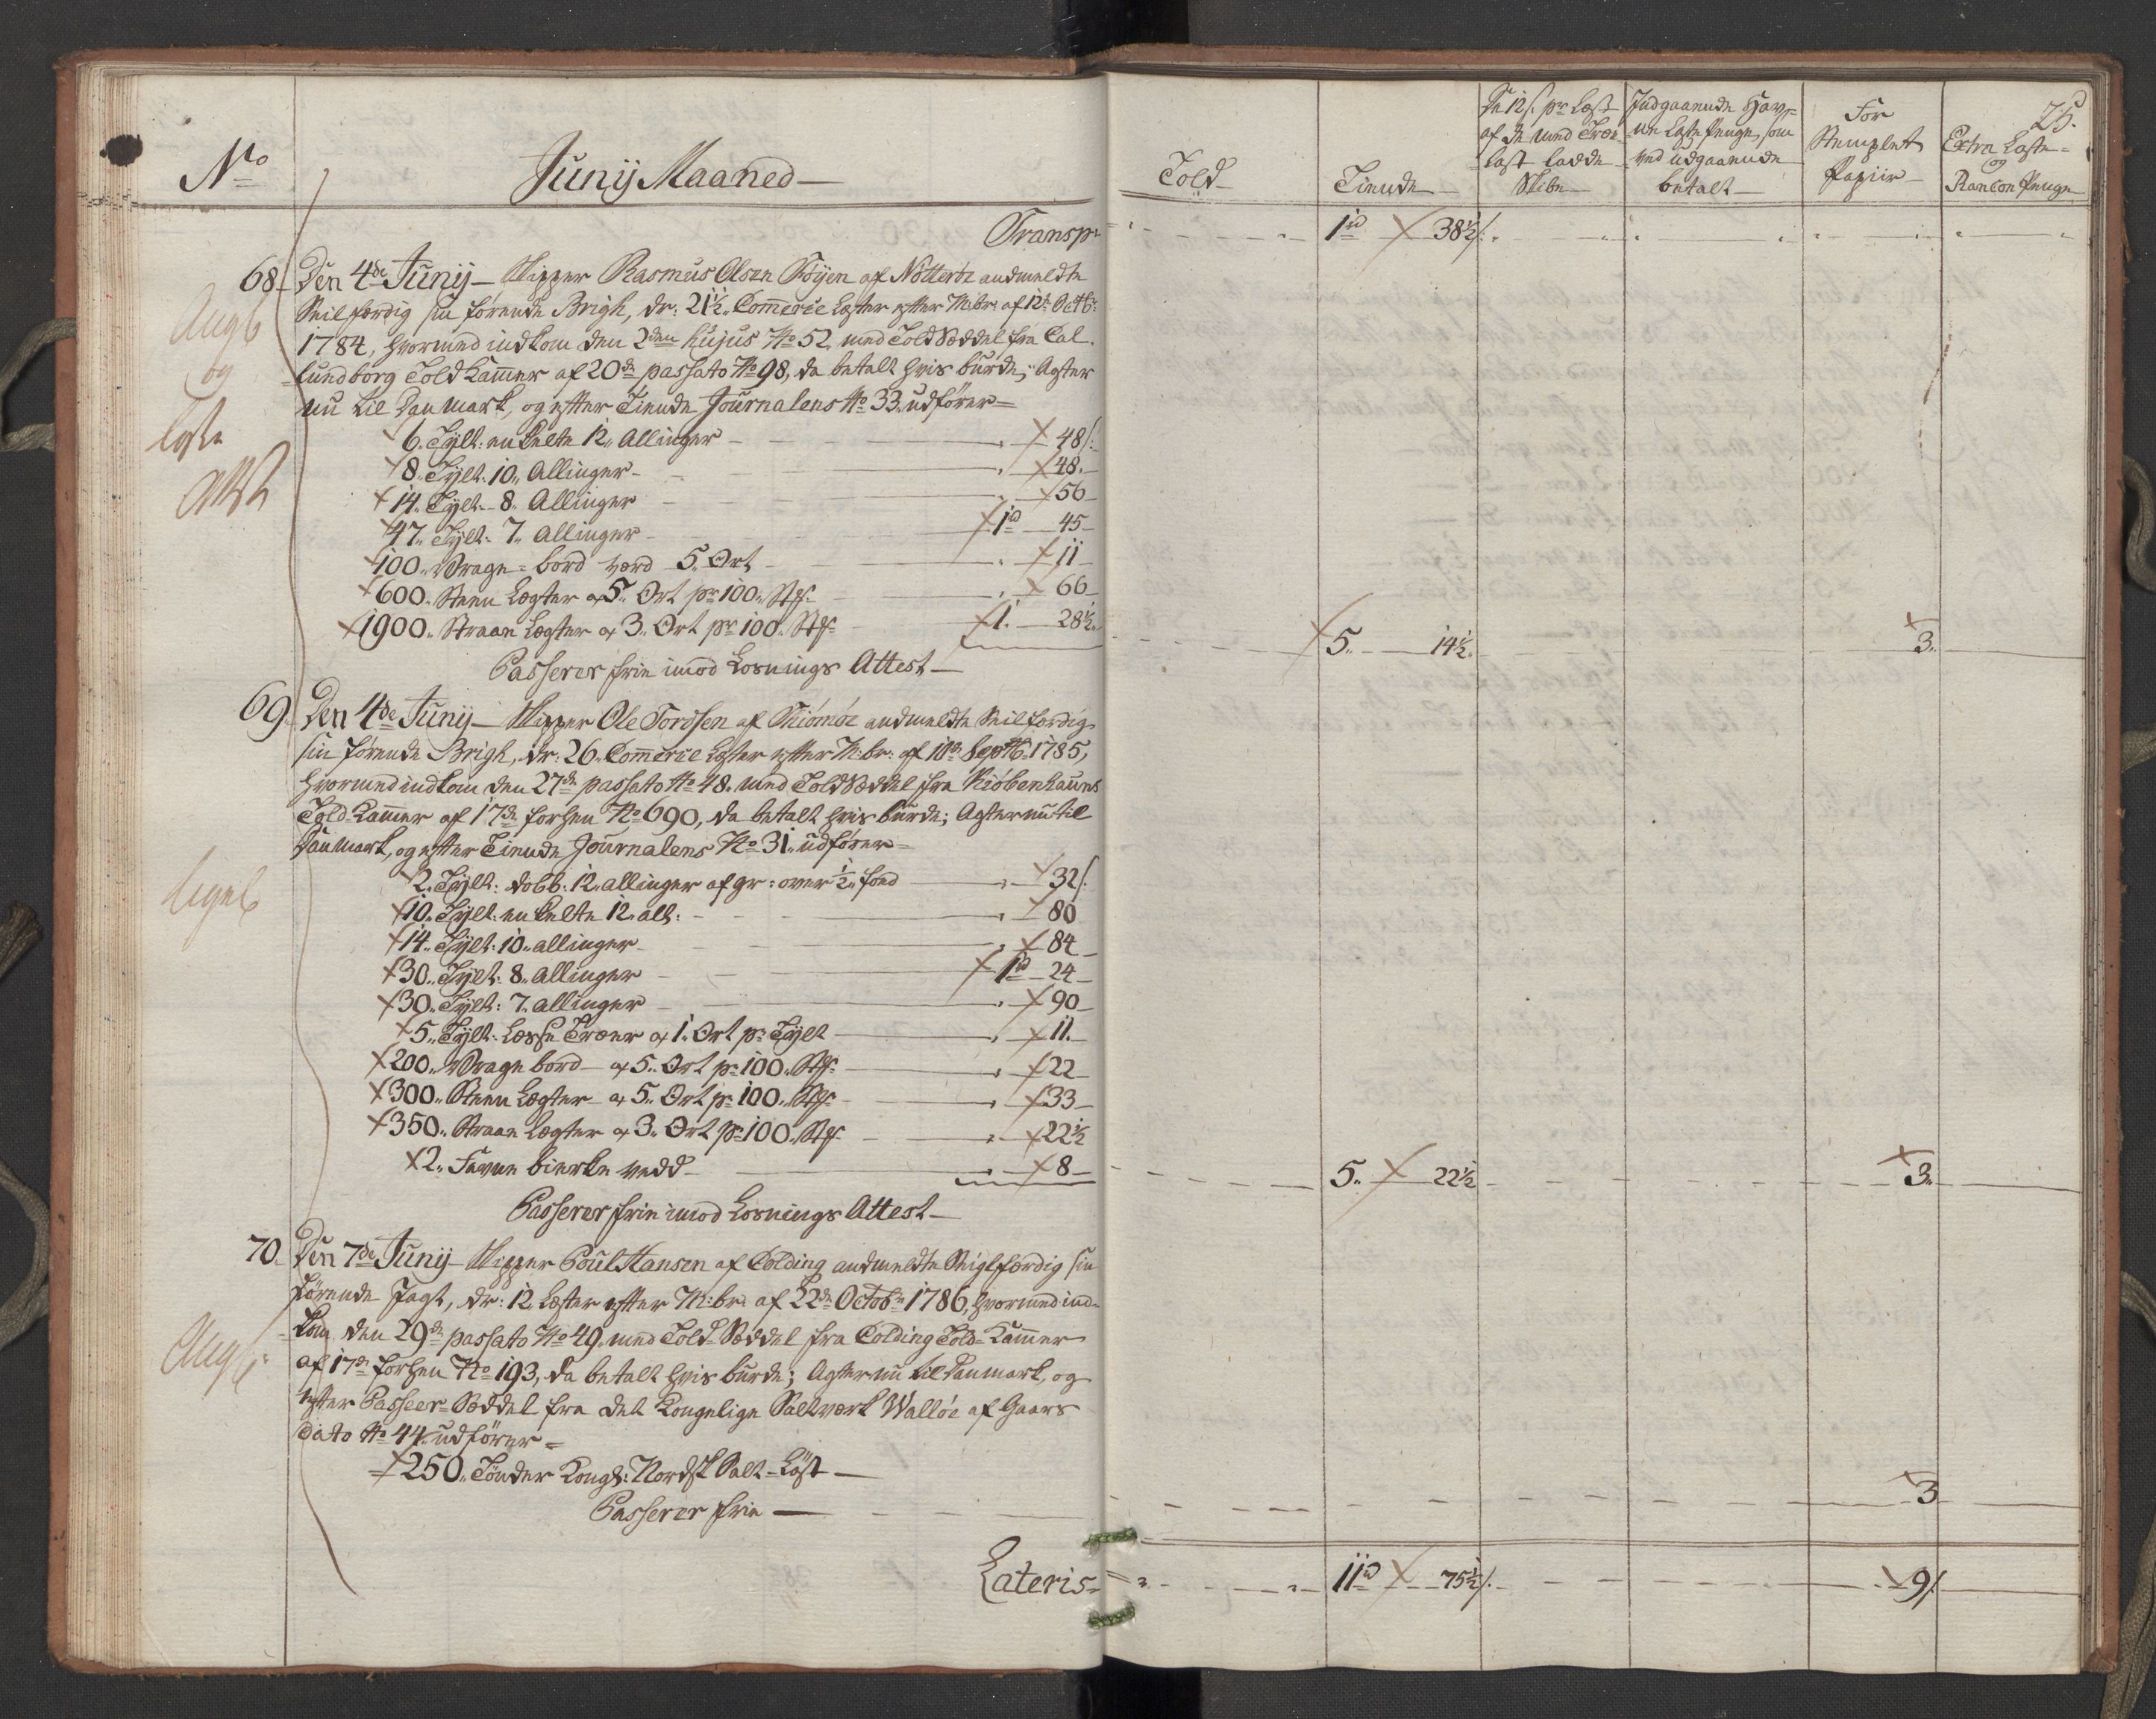 No
Junij Maaned
Transpr
68. Den 4de Junij Skipper Rasmus Olsen Föyen af Nötteröe andmeldte
Seilfærdig sin førende Brigh, dr: 21 1/2 Commerce Læster efter M:br: af 12te Octbr:
1784, hvormed indkom den 2den hujus No 52 med Told Sæddel fra Cal-
lundborg Told Kammer af 20de passato No 98, da betalt hvis burde; Agter
nu til Danmark, og efter Tiende Journalens No 33 udfører
Angb
og
Loste
Attst
6. Tylt: enkelte 12 Allinger 48 s:
8. Tylt: 10 Allinger 48.
14. Tylt: 8 Allinger 56
47. Tylt: 7 Allinger 1 rd 45
100. Vrage-bord værd 5 Ort 11
600. Steen Lægter a 5 Ort pr 100 Stk: 66
1900. Straae Lægter a 3 Ort pr 100 Stk: 1. 28 1/2
Passerer frie imod Losnings Attest
69. Den 4de Junij Skipper Ole Torösen af Tiömöe andmeldte Seilfærdig
sin førende Brigh, dr: 26 Commerce Læster efter M:br: af 18de Septbr 1785,
hvormed indkom den 27de passato No 48. med Told Sæddel fra Kiöbenhauns
Told-Kammer af 17de forhen No 690, da betalt hvis burde; Agter nu til
Danmark, og efter Tiende Journalens No 31. udfører
ligel
2. Tylt: dobb: 12 allinger af gr: over 1/2 foed 32 s:
10. Tylt: enkelte 12 all: 80
14. Tylt: 10 allinger 84
30. Tylt: 8 allinger 1 rd 24
30. Tylt: 7 allinger 90
5. Tylt: Læsse Træer a 1 Ort pr Tylt 11.
200. Vrage bord a 5 Ort pr 100 Stk: 22
300. Steen Lægter a 5 Ort pr 100 Stk: 33
350. Straae Lægter a 3 Ort pr 100 Stk: 22 1/2
2. Favne bierke vedd 8
Passerer frie imod Losnings Attest
70. Den 7de Junij Skipper Poul Hansen af Colding andmeldte Seiglfærdig sin
førende Jagt, dr: 12 Læster efter M:br: af 22de Octobr 1786, hvormed ind-
kom den 29de passato No 49 med Told Sæddel fra Colding Told-Kammer
af 17de forhen No 193, da betalt hvis burde; Agter nu til Danmark, og
efter Passeer-Sæddel fra det Kongelige Saltværk Walløe af Gaars
dato No 44 udfører
Angb
250. Tønder Kongl: Nordsk Salt-Løst
Passerer frie
Lateris
25.
Told
Tiende
De 12 s. pr Læst af de med Træe-last ladde Skibe
Indgaaende Havne Laste Penge, som ved udgaaende betalt
For Stemplet Papiir
Extra Laste- og Rancon Penge
1 rd 38 1/2 s:
5. 14 1/2. 3.
5. 22 1/2 3.
3
11 rd 75 1/2 s. 9 s